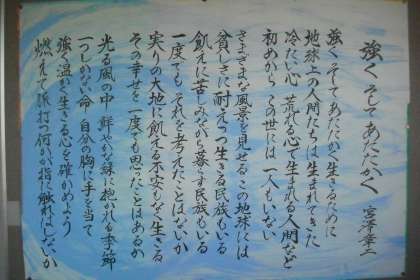 強く そして あたたかく 宮澤章二
強く そして あたたかく 生きるために
地球上の人間たちは 生まれてきた
冷たい心 荒れる心で 生まれる人間など
初めから この世には 一人もいない
さまざまな風景を見せる この地球には
貧しさに耐えつつ 生きる民族もいる
飢えに苦しみながら 暮らす民族もいる
一度でも それを考えたことはないか
実りの大地に 飢える不安もなく生きる
その幸せを 一度でも思ったことはあるか
光る風の中 鮮やかな緑に抱かれる季節
一つしかない命 自分の胸に手を当て
強く温かく生きる心を確かめよう
燃えて脈打つ何かが 指に触れはしないか